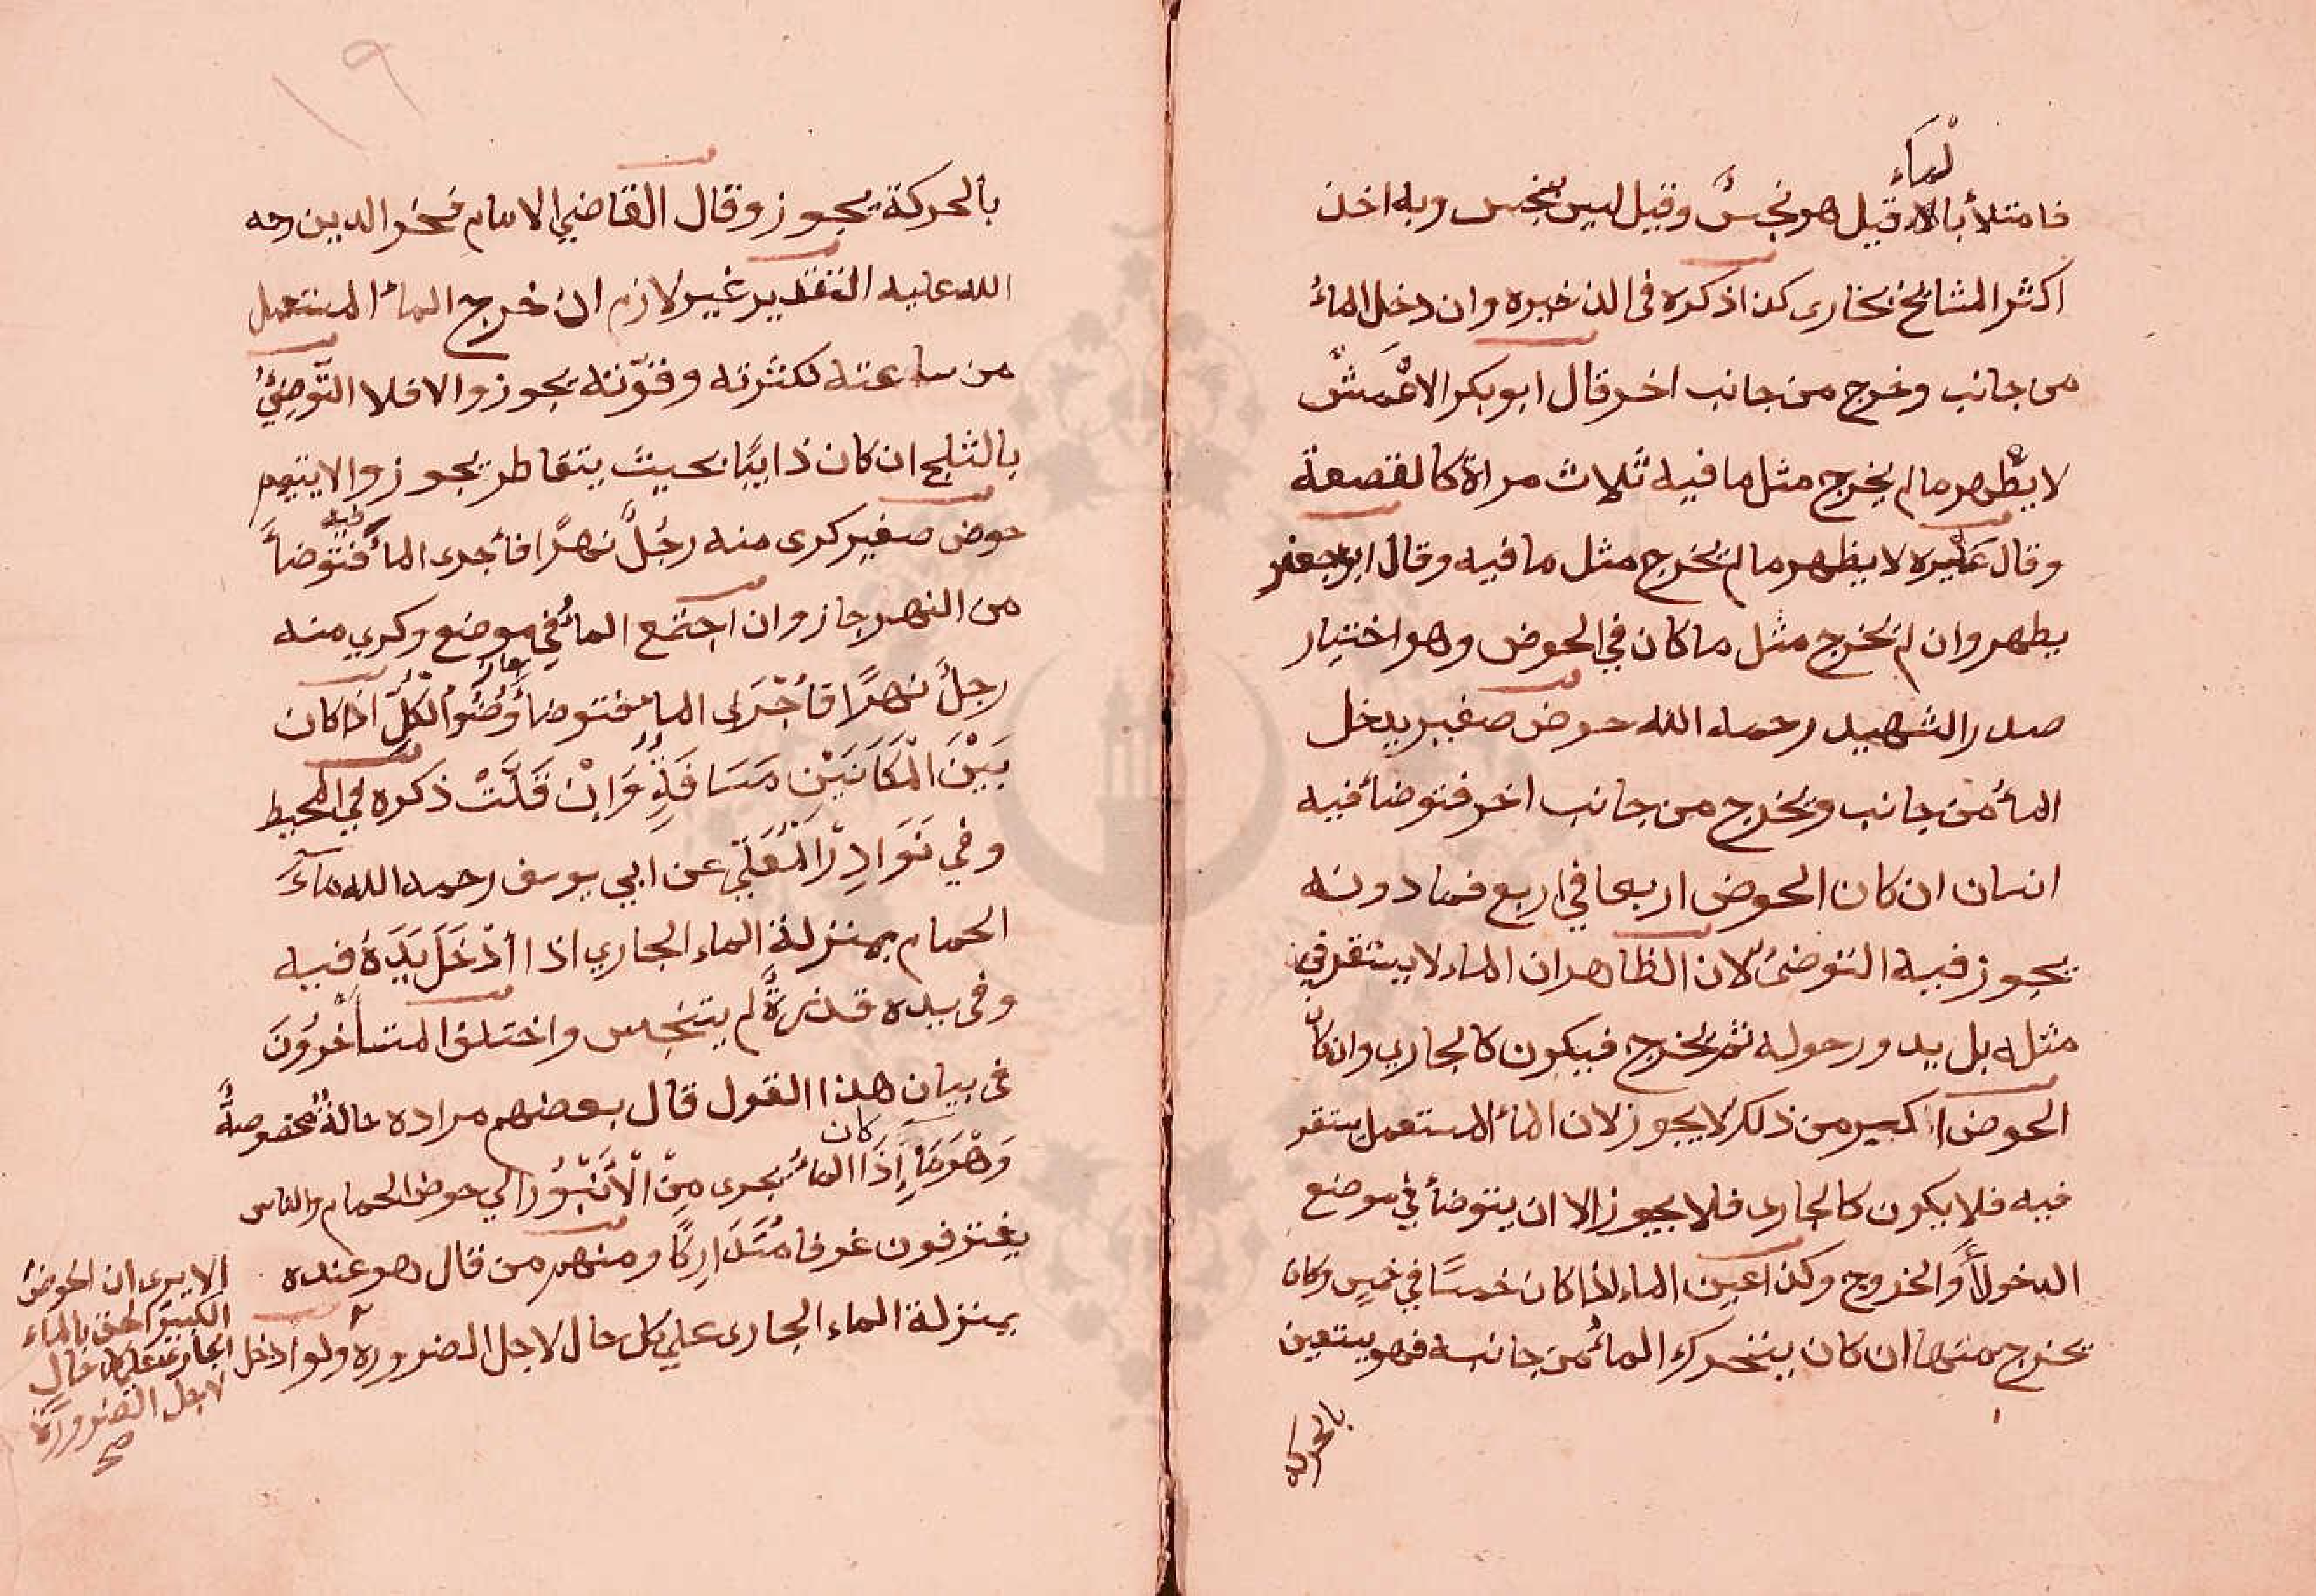 لماء
فامتلأ بالاد قيل هو نجسٌ وقيل ليس بنجس وبه اخذ
اكثر المشايخ بخارى كذا ذكره فى الذخيره وان دخل الماءُ
من جانب وخرج من جانب اخر قال ابو بكر الاعْمَشْ
لا يطْهر مالم يخرج مثل ما فيه ثلاث مراة كالقصعة
وقال غَيْره لا يطهر مالم يخرج مثل ما فيه وقال ابو جعفر
يطهر وان لم يخرج مثل ما كان في الحوض وهو اختيار
صدر الشهيد رحمه الله حوض صغير يدخل
الماءُ من جانب ويخرج من جانب اخر فتوضأ فيه
انسان ان كان الحوض اربعا في اربع فما دونه
يجوز فيه التوضئ لان الظاهر ان الماء لا يستقر في
مثله بل يدور حوله ثم يخرج فيكون كالجاري وان كان
الحوض اكبير من ذلك لا يجوز لان الماء المستعمل يستقر
فيه فلا يكون كالجارى فلا يجوز الا ان يتوضأ في موضع
الدخول أَو الخروج وكذا عين الماء اذا كان خمسًا في خمس وكان
يخرج منها ان كان يتحرك الماءُ من جانبه فهو يتعين
بالحركة
١٩
بالحركة يجوز وقال القاضي الامام فخر الدين رحمه
الله عليه التقدير غير لازم ان خرج الماء المستعمل
من ساعته لكثرته وقوّته يجوز والا فلا التّوضِئُ
بالثلج ان كان ذايبًا بحيث يتقاطر يجوز والا يتيمم
حوض صغير كرى منه رجُلٌ نهرًا فأجرى الماءَ فيه فتوضأَ
من النهر جاز وان اجتمع الماءُ في موضع وكري منه
رجلٌ نهرًا فأَجْرَى الماء فتوضأ جاز وُضُوءُ الكُلِّ اذا كان
بَيْنَ الْمَكَانَيْنِ مَسَافَةٍ وَإِنْ قَلَّتْ ذكره في المحيط
وفي نَوَادِرِ الْمُعَلَّى عن ابي يوسف رحمه الله مآءُ
الحمام بمنزلة الماء الجاري اذا أَدْخَلَ يَدَهُ فيه
وفى يده قذرةٌ لم يتنجس واختلف المتأخرُونَ
فى بيان هذا القول قال بعضهم مراده حالةٌ مخصوصةٌ
وَهْوَ مَا إِذَا كان الماءُ يجرى مِنَ الْأَنْبُورِ الي حوض الحمام والناس
يغترفون غرفا مُتَدَارِكًا ومنهم من قال هو عنده
بمنزلة الماء الجارى علي كل حال لاجل الضرورة ولو ادخل
الا يرى ان الحوض
الكبير الحق بالماء
الجارى على كل حال
لاجل الضرورة
صح